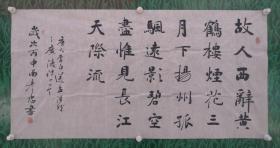 故人西辭黃
鶴樓煙花三
月下揚州孤
颿遠影碧空
盡惟見長江
天際流
唐人李白送孟浩然
之廣陵詩一首
歲次丙申南書